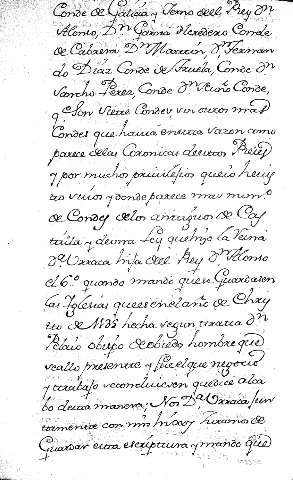 Conde de Galicia y Yerno del Rey Dn
Alonso, Dn Garcia heredero Conde
de Cabrera Dn Martin Dn Fernan
do Diaz Conde de Conde Dn
Sancho Perea, Conde Dn Nuño Conde,
q.e Son siete Condes sin otros mas
Condes que havia en esta sazon como
parece de las Coronicas de estos Reies
y por muchos privilegios que io he vis
to y donde parece mas num.o
de Condes de los antiguos de Cas
tilla y de una Ley que hizo la Reina
D.a Urraca hija del Rey Dn Alonso
el 6.o quando mando que se Guardasen
las Iglesias que es en el año de Chris
to de hecha segun Dn
Pelaio obispo de obiedo hombre que
se allo presente y fue el que negocio
y trabajo se concluiesen que dice a ca
bo de esta manera; Nos D.a Urraca jun
tamente con mis hijos y
Guardar esta escriptura y mando que